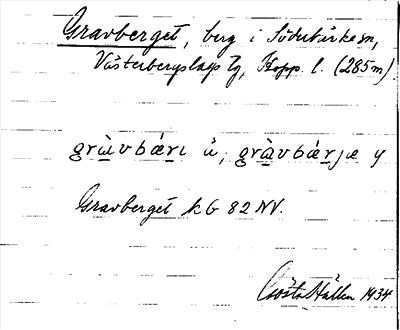 Gravberget, berg i Söderbärke sn,
Västerbergslags tg, Kopp. l. (285 m).
gràvbæ̀rı ä, gràvbæ̀rjæ y
Gravberget kG 82 NV.
Gösta Hallen 1934